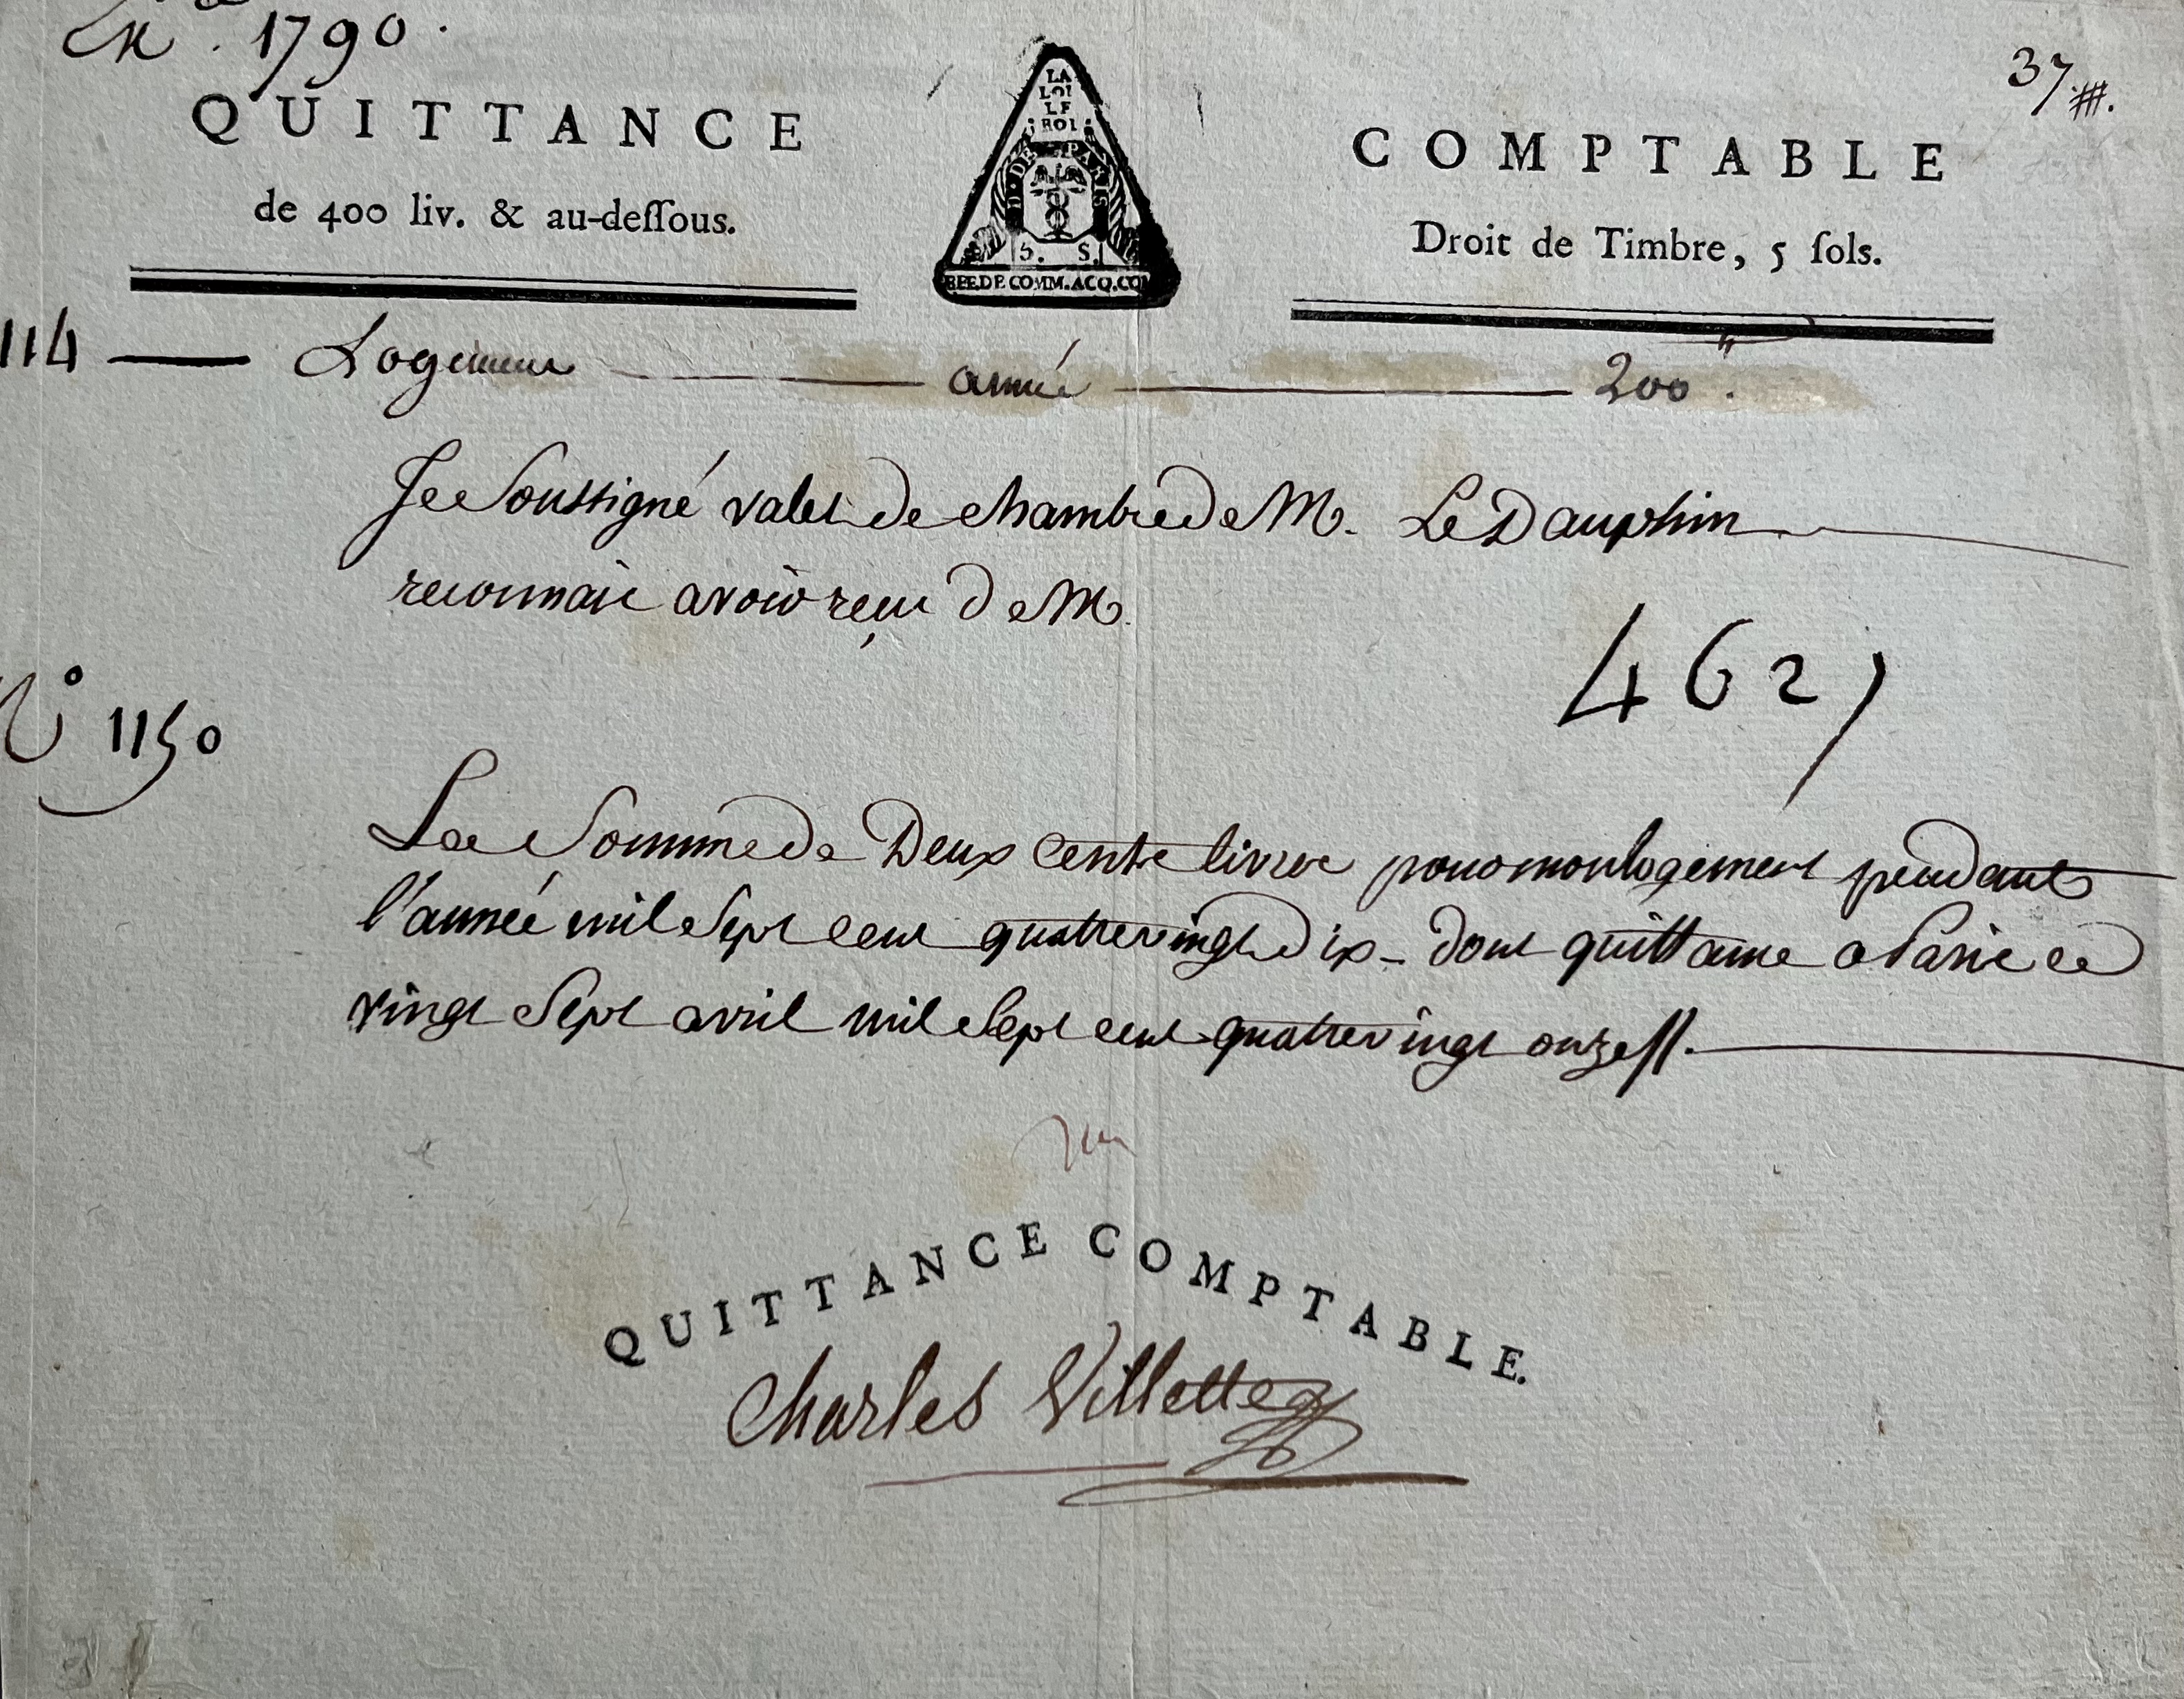 Exce. 1790.
37 ⋕.
QUITTANCE
COMPTABLE
de 400 liv. & au-deſſous.
Droit de Timbre, 5 ſols.
LA
LOI
LE
ROI
D. DE PARIS
5. S.
COMM. ACQ. COM
114 — Logement — année — 200".
Je Soussigné valet de chambre de M. Le Dauphin
reconnais avoir reçu de M.
4627
N° 1150
La Somme de Deux Cents livres pour mon logement pendant
l'année mil Sept cent quatrevingt Dix - dont quittance a Paris ce
vingt Sept avril mil Sept cent quatrevingt onze //.
QUITTANCE COMPTABLE.
Charles Villette